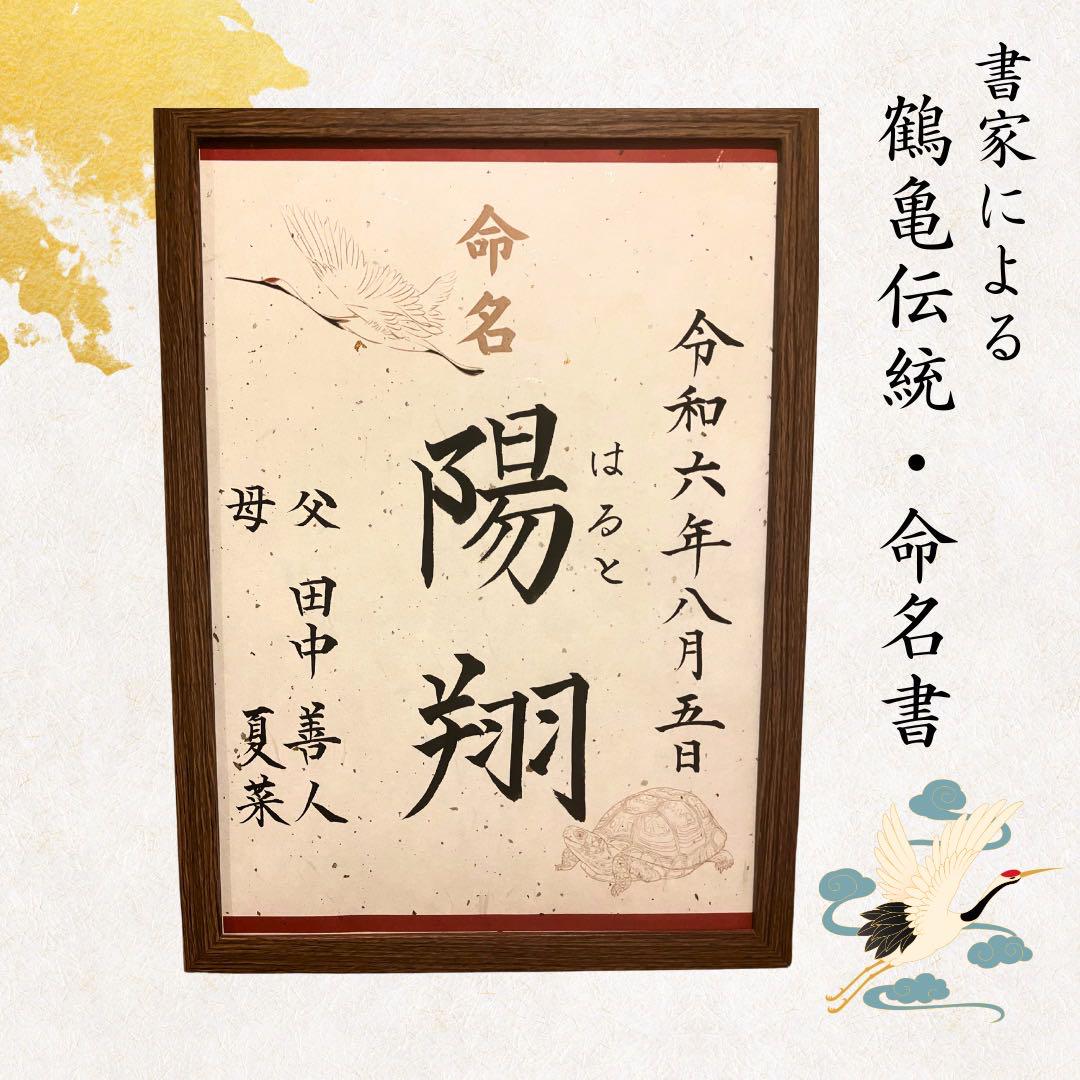 書家による
鶴亀伝統・命名書
命名
令和六年八月五日
はると
陽翔
父 田中 善人
母 夏菜